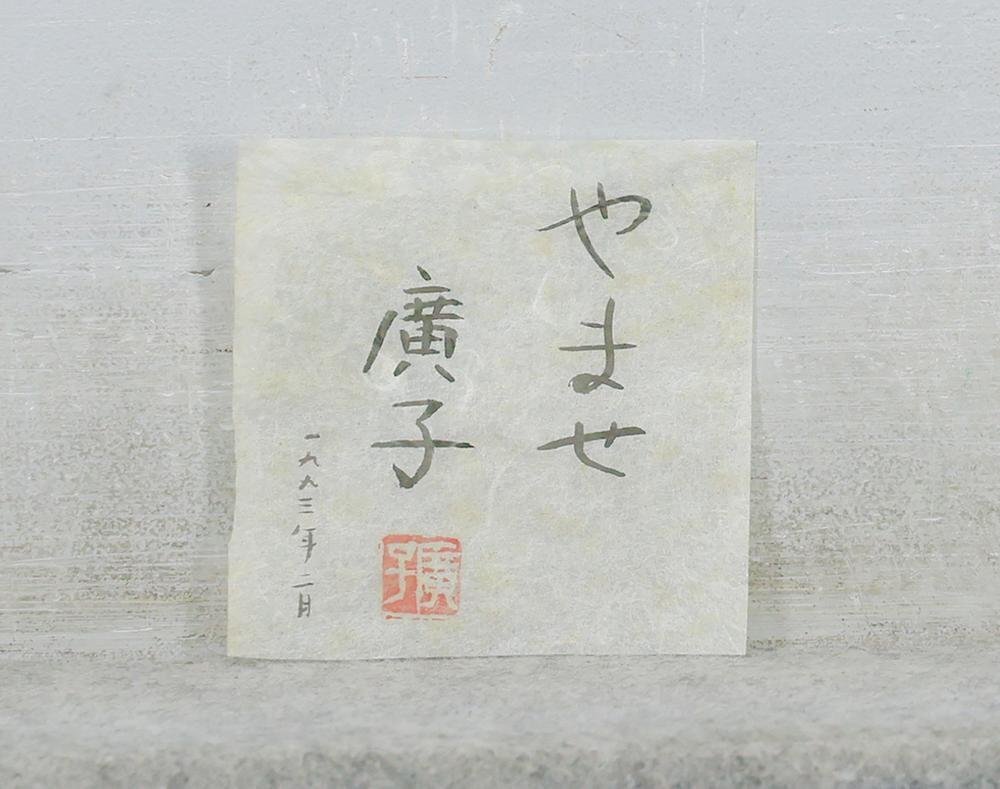 やませ
廣子
廣子
一九九三年二月